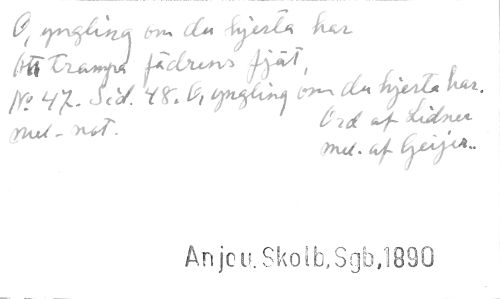 O, yngling om du hjerta har
Att trampa fädrens fjät,
No 47. Sid. 48. O, yngling om du hjerta har.
mel-not. Ord af Lidner
mel. af Geijer..
Anjou, Skolb, Sgb, 1890